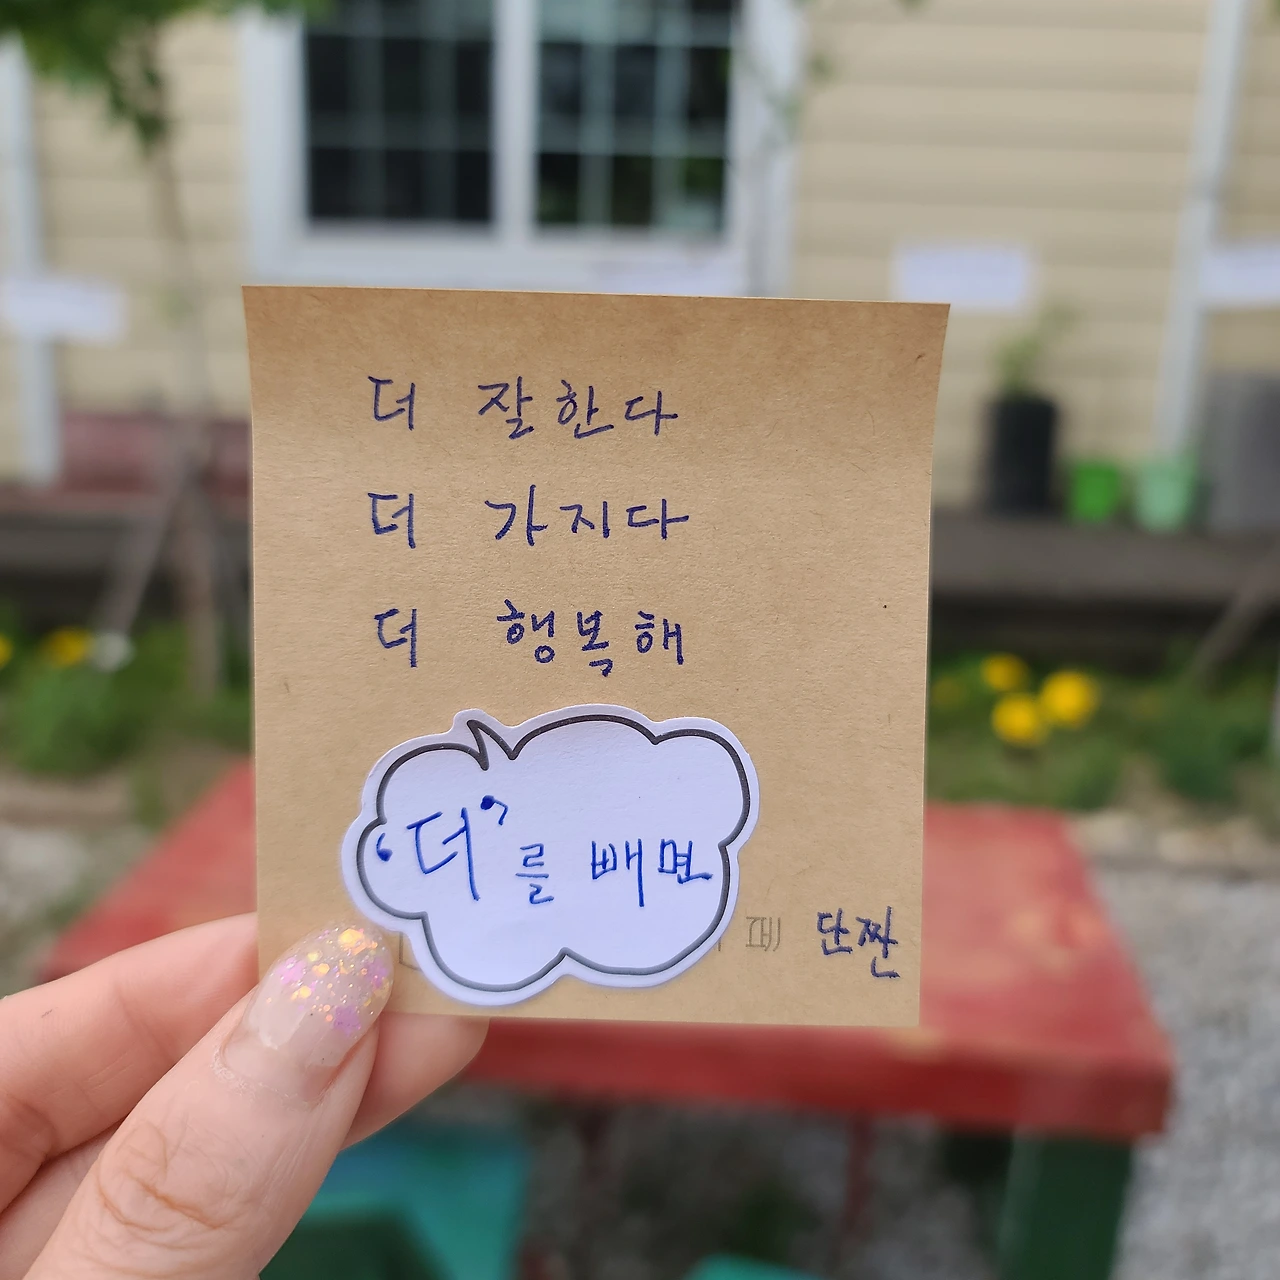 더 잘한다
더 가지다
더 행복해
'더'를 빼면
단짠